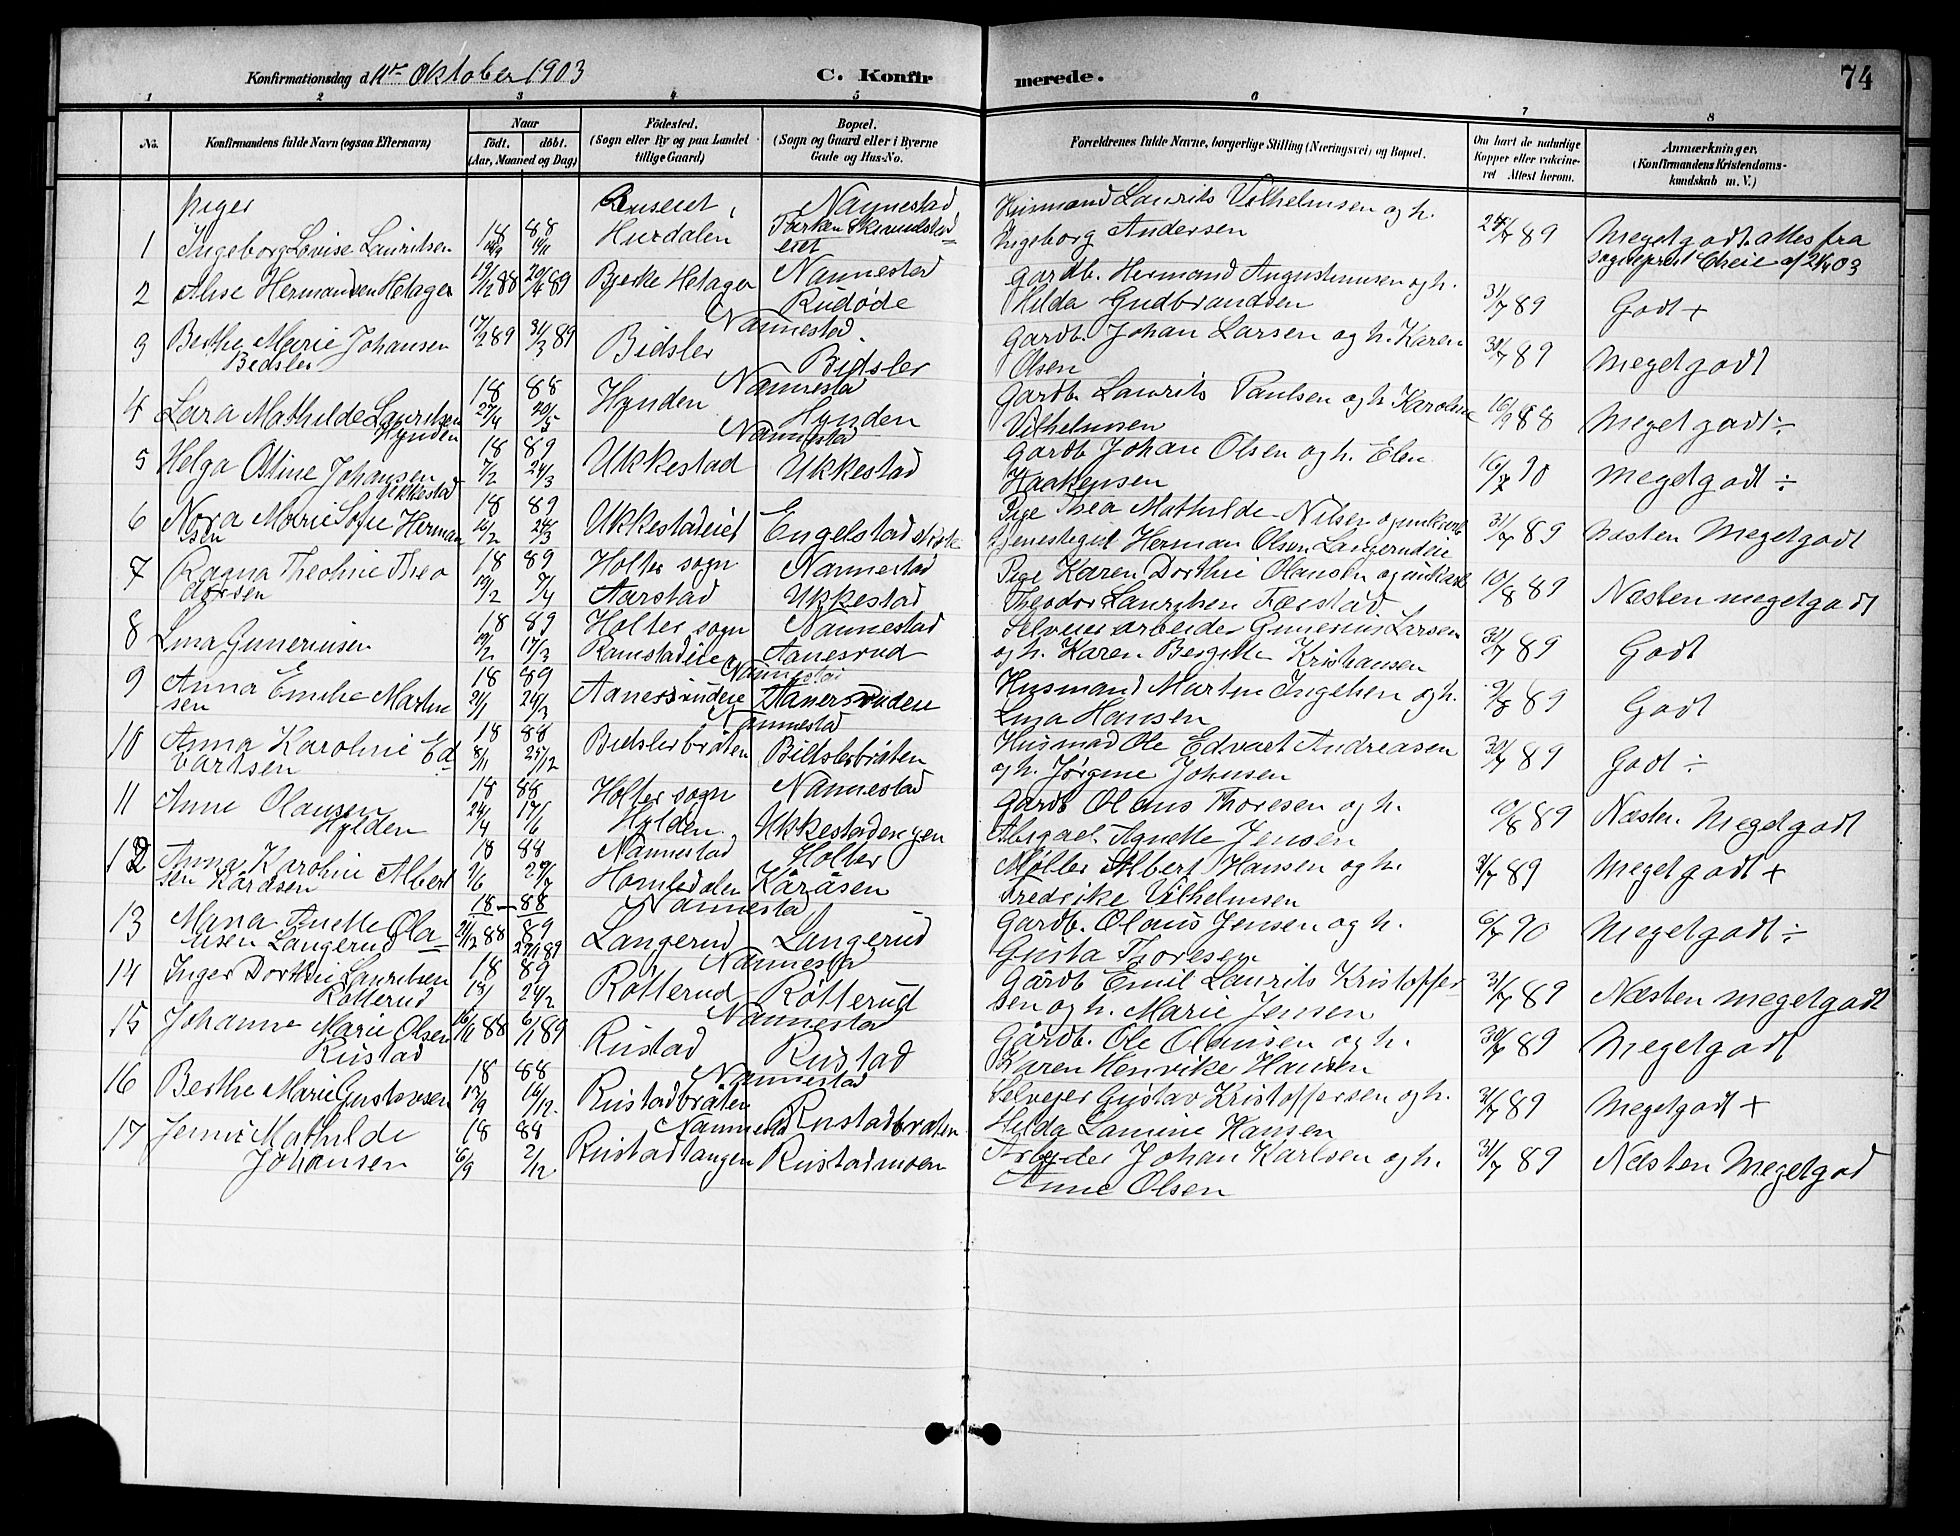 Konfirmationsdag d. 11te Oktober 1903
C. Konfir
merede.
74
1 2 3 4 5 6 7 8
No.
Konfirmandens fulde Navn (ogsaa Efternavn)
Naar
født. døbt.
(Aar, Maaned og Dag)
Fødested.
(Sogn eller By og paa Landet
tillige Gaard)
Bopæl.
(Sogn og Gaard eller i Byerne
Gade og Hus-No.
Forældrenes fulde Navne, borgerlige Stilling (Næringsvei) og Bopæl.
Om havt de naturlige
Kopper eller vakcine-
ret Attest herom.
Anmærkninger,
(Konfirmandens Kristendoms-
kundskab m. V.)
piger
1 Ingeborg Lovise Lauritsen 18 88 Hurdalen Nannestad
Husmand Laurits Vilhelmsen og h.
Ingeborg Andersen 89 Megetgodt. attes fra
sogneprest
2 Alise Hermansen Hetager 19/12 88 20/4 89 Bjerke Hetager Nannestad
Rudøde
Gardb. Hermand Augustinusen og h.
Hilda Gudbrandsen 31/7 89 Godt +
3 Berthe Marie Johansen
Bidsler 17/2 89 31/3 89 Bidsler Nannestad
Bidsler
Gardb. Johan Larsen og h. Karen
Olsen 30/7 89 Megetgodt
4 Lara Mathilde Lauritsen
Hynden 18 88 27/4 20/5 Hynden Nannestad
Hynden
Gardb. Laurits Paulsen og h. Karoline
Vilhelmsen 16/9 88 Megetgodt ÷
5 Helga Ottine Johansen
Ukkestad 18 89 7/2 24/3 Ukkestad Nannestad
Ukkestad
Gardb Johan Olsen og h. Elen
Haakensen 16/7 90 Megetgodt ÷
6 Nora Marie Sofie Herman
sen 18 89 24/3 Ukkestadeiet Engelstad
Pige Thea Mathilde Nilsen og
Herman Olsen Langerudeie 31/7 89 næsten Megetgodt
7 Ragna Theoline Theo
dorsen 18 89 19/2 7/4 Holter sogn
Aarstad Nannestad
Ukkestad
Pige Karen Dorthie Olausen og
Theodor Lauritsen 10/8 89 Næsten megetgodt
8 Lina Guneriusen 18 89 19/2 17/3 Holter sogn
Ramstadeie Nannestad
Aanesrud
Selveier arbeider Gunerius Larsen
og h. Karen Bergitte Kristiansen 31/7 89 Godt
9 Anna Emilie Martin
sen 18 89 21/1 24/3 Nannestad
Husmand Martin Ingelsen og h.
Lina Hansen 9/8 89 Godt
10 Anna Karoline Ed
vartsen 18 88 8/11 25/12 Bidslerbråten Nannestad
Bidslerbråten
Husmand Ole Edvart Andreasen
og h. Jørgine Johnsen 30/7 89 Godt ÷
11 Anne Olausen
Hylden 18 88 24/4 17/6 Holter sogn
Hylden Nannestad
Ukkestadengen
Gardb Olaus Thoresen og h.
Abigael Agnette Jensen 10/8 89 Næsten Megetgodt
12 Anna Karoline Albert
sen Kåråsen 18 88 9/6 29/7 Nannestad
Homledalen Holter
Kåråsen
Møller Albert Hansen og h.
Fredrike Vilhelmsen 31/7 89 Megetgodt +
13 Maria Anette Ola
usen Langerud 18 — 88 21/12 88 89 27/1 89 Langerud Nannestad
Langerud
Gardb. Olaus Jensen og h.
Gusta Thoresen 6/7 90 Megetgodt ÷
14 Inger Dorthie Lauritsen
Rotterud 18 89 24/2 Rotterud Nannestad
Rotterud
Gårdb Emil Laurits Kristoffer-
sen og h. Marie Jensen 31/7 89 Næsten megetgodt
15 Johanne Marie Olsen
Rustad 16/11 88 6/1 89 Rustad Nannestad
Rustad
Gårdb. Ole Olausen og h.
Karen Henrike Hansen 30/7 89 Megetgodt
16 Berthe Marie Gustavesen 18 88 17/9 16/12. Rustadbråten Nannestad
Rustadbraten
Selveier Gustav Kristoffersen og h.
Hilda Lamine Hansen 31/7 89 Megetgodt +
17 Jenni Mathilde
Johansen 18 88 6/9 2/12. Rustadtangen Nannestad
Rustadmoen
Arbeider Johan Karlsen og h.
Anne Olsen 31/7 89 Næsten Megetgod